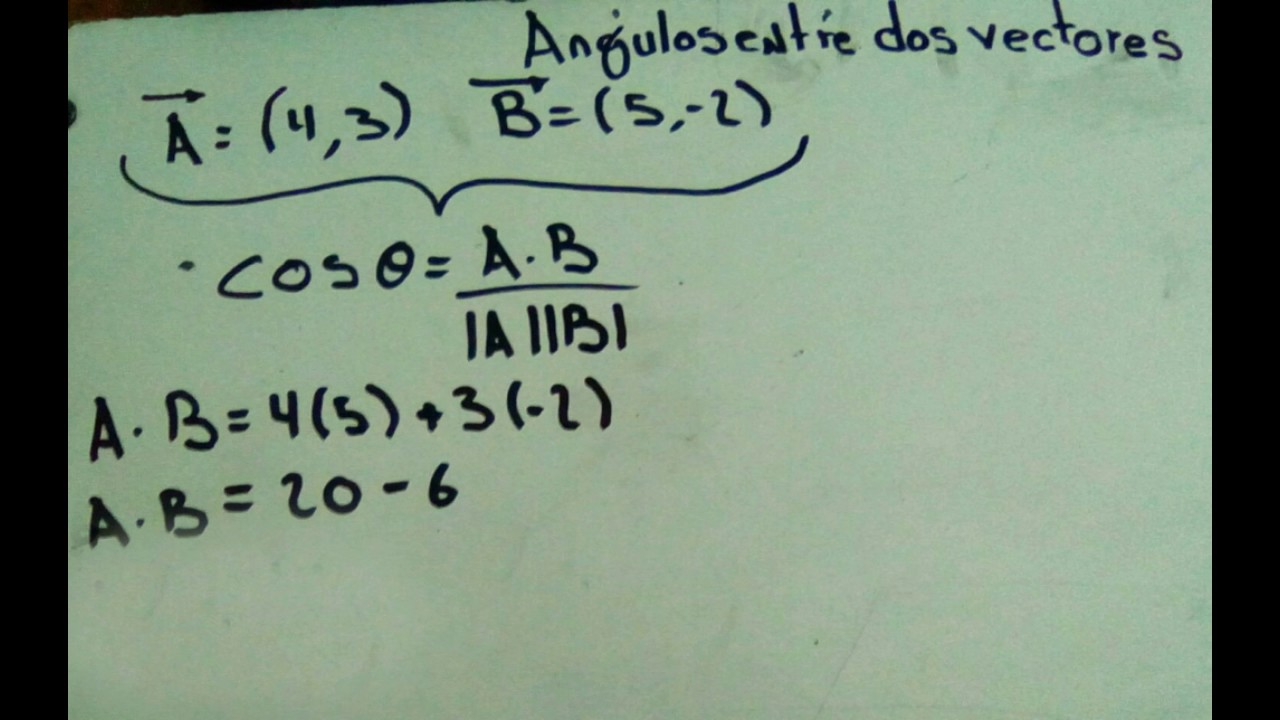 Angulos entre dos vectores
A = (4,3) B = (5,-2)
cos θ = A · B
|A||B|
A · B = 4(5) + 3(-2)
A · B = 20 - 6